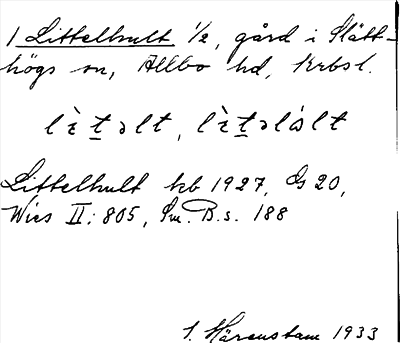 1 Littelhult ½, gård i Slätt-
högs sn, Allbo hd, Krbsl.
lìt̠əlt, lìt̠əlált
Littelhult kb 1927, G 20,
Wies II: 805, Sm. B. s. 188
S. Härenstam 1933